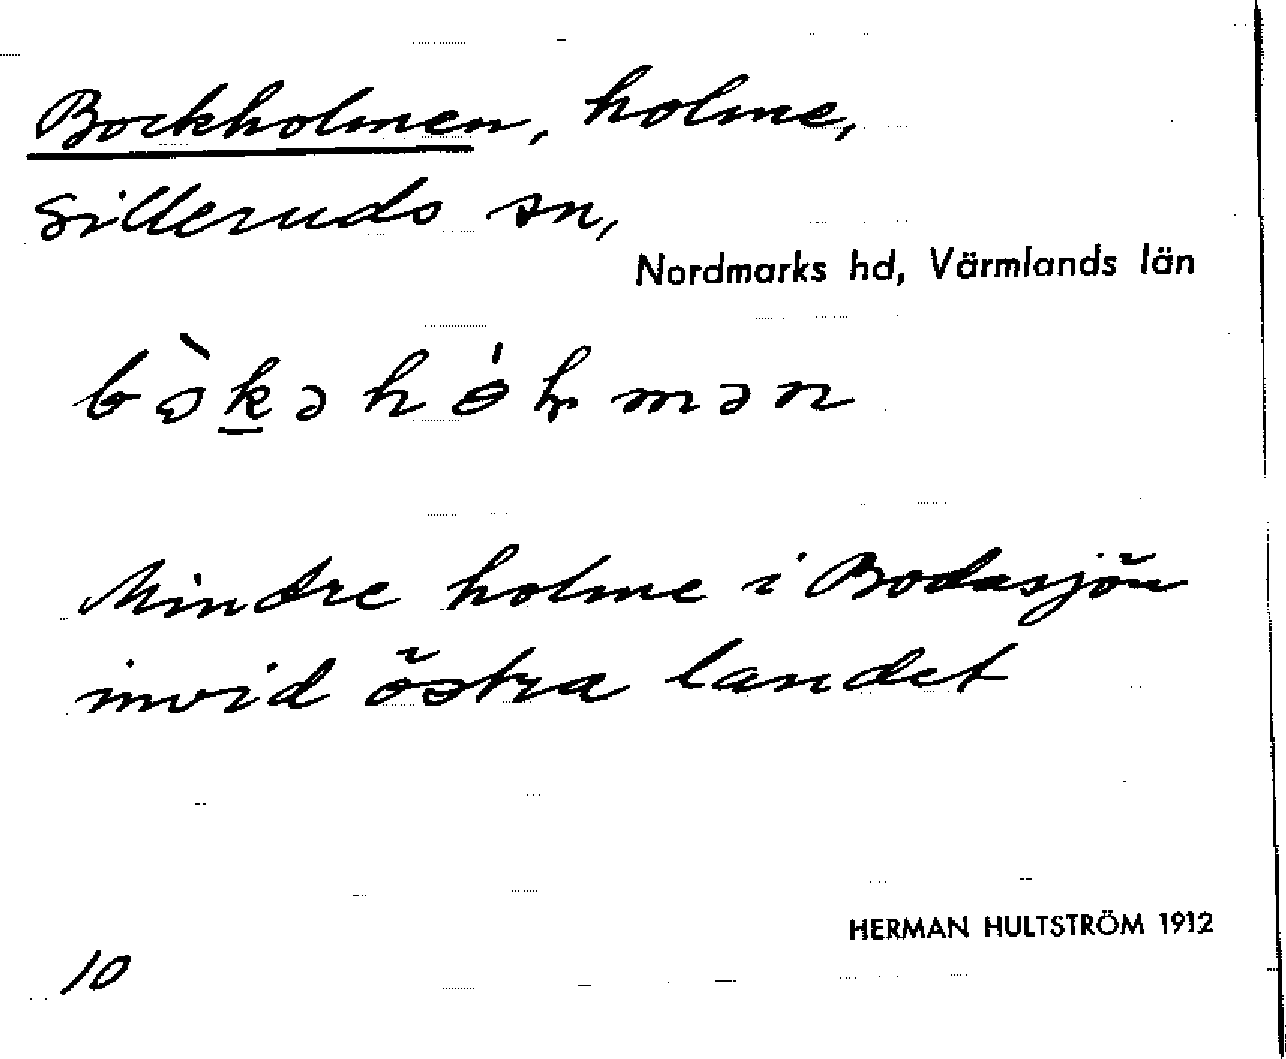 Bockholmen, holme,
Silleruds sn,
Nordmarks hd, Värmlands län
Mindre holme i Bodasjön
invid östra landet
HERMAN HULTSTRÖM 1912
10